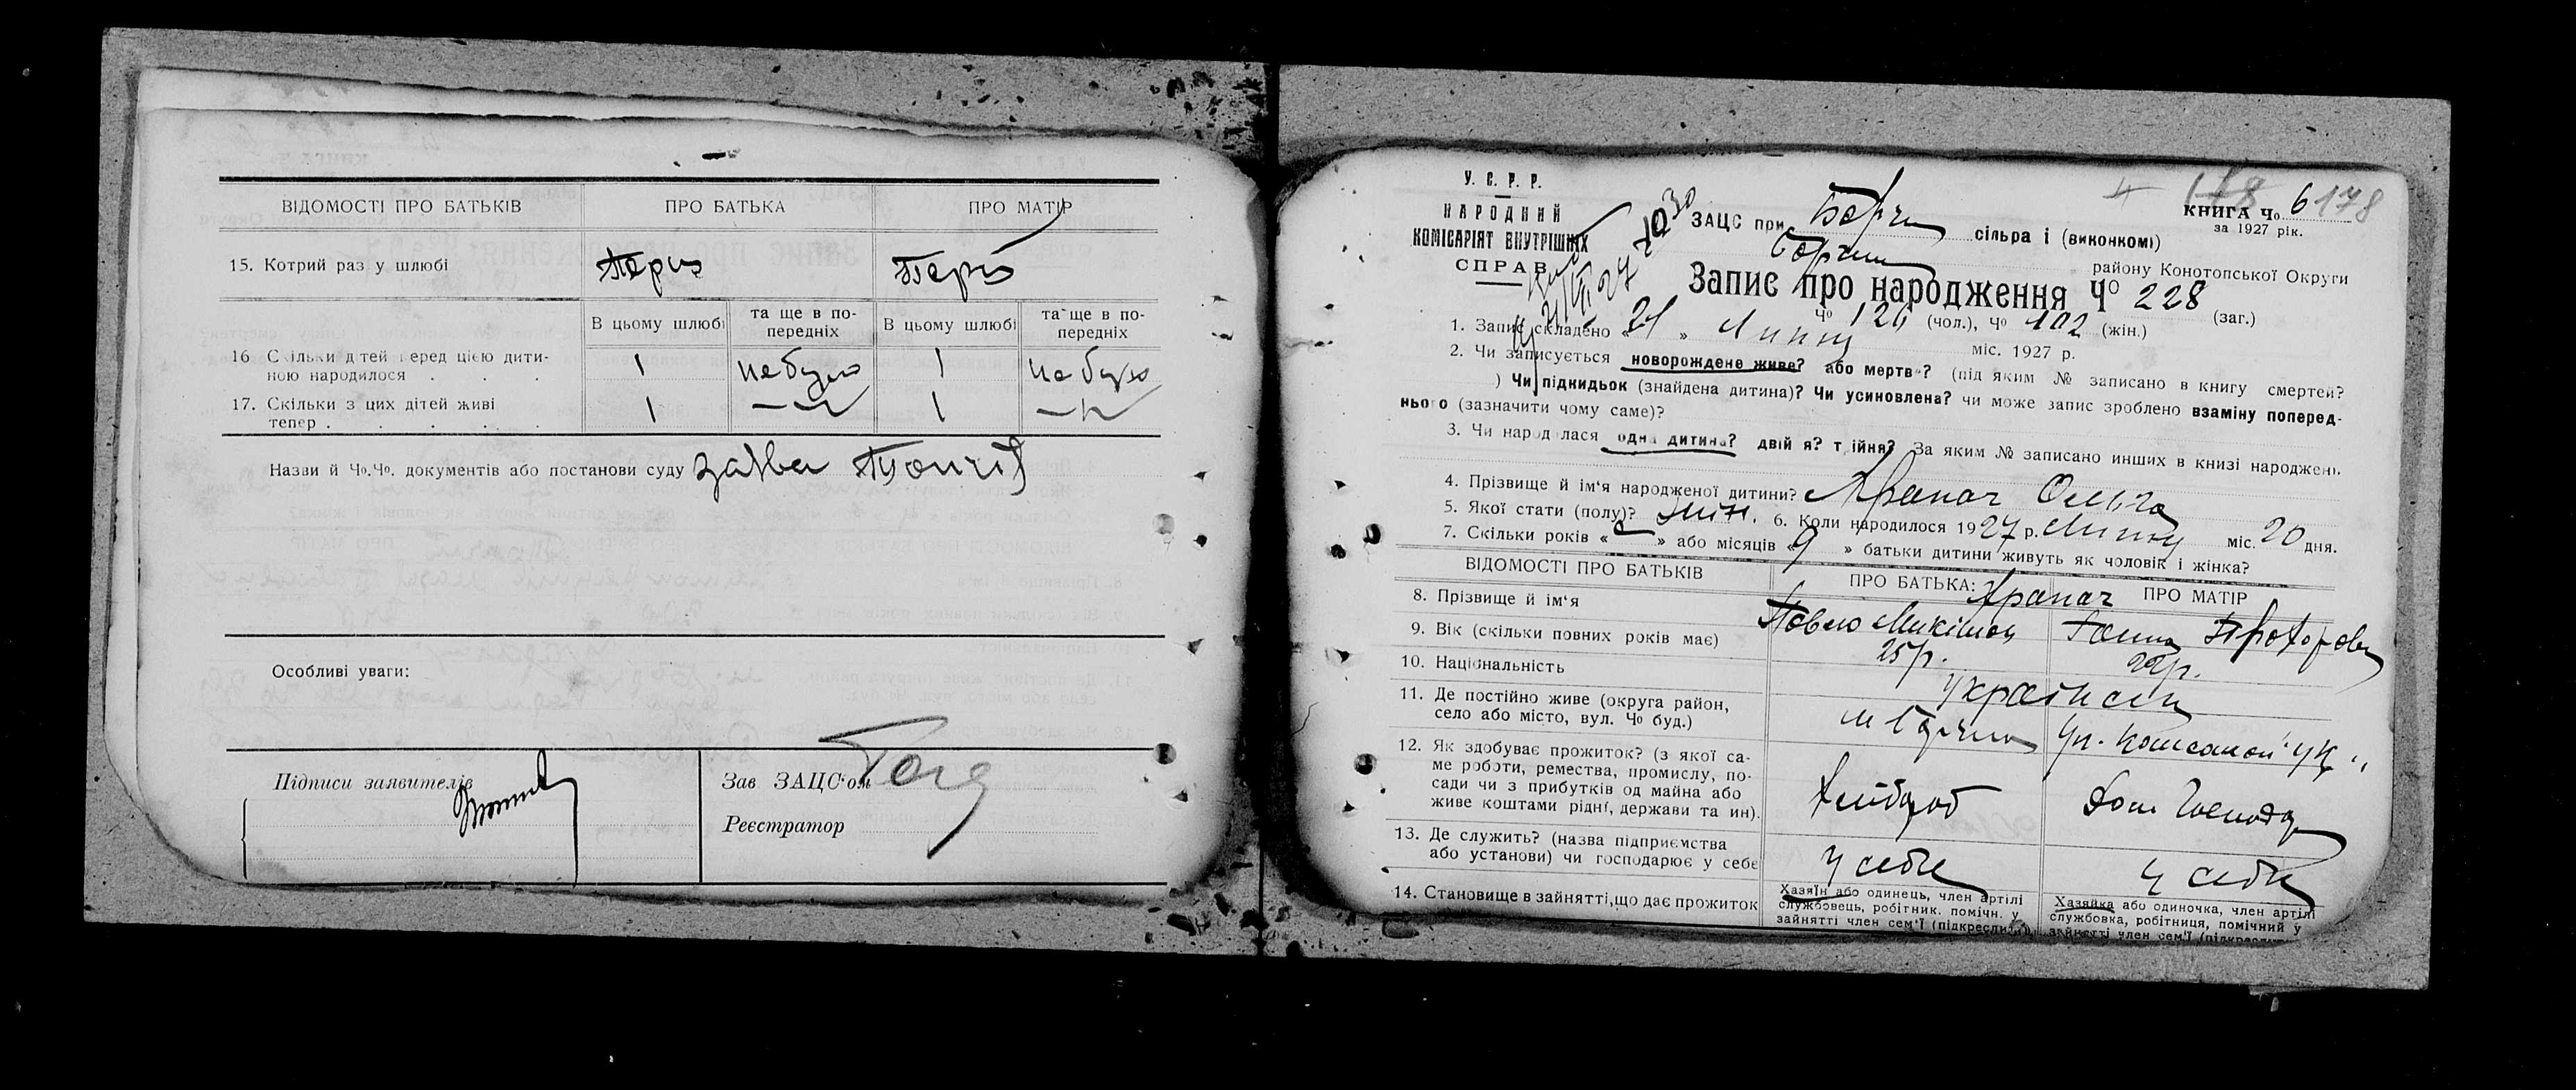 ВІДОМОСТІ ПРО БАТЬКІВ ПРО БАТЬКА ПРО МАТІР
15. Котрий раз у шлюбі
В цьому шлюбі та ще в по-передніх В цьому шлюбі та ще в по-передніх
16 Скільки дітей перед цією дити-
ною народилося . . . 1 не було 1 не було
17. Скільки з цих дітей живі
тепер . . . . . 1 1
Назви й Чо.Чо. документів або постанови суду заява
Особливі уваги:
Підписи заявителів
Зав ЗАЦС'ом
Реєстратор
178 178
У. С. Р. Р.
НАРОДНИЙ
КОМІСАРІЯТ ВНУТРІШНІХ
СПРАВ
КНИГА Чо. 6
за 1927 рік.
ЗАЦС при Борзн сільра і (виконкомі)
Борзни району Конотопської Округи
Запис про народження Чо 228 (заг.)
Чо 126 (чол.), Чо 102 (жін.)
1. Запис складено « 21 » Липня міс. 1927 р.
2. Чи записується новорождене живе? або мертве? (під яким № записано в книгу смертей?
) Чи підкидьок (знайдена дитина)? Чи усиновлена? чи може запис зроблено взаміну поперед-
нього (зазначити чому саме)?
3. Чи народилася одна дитина? двійня? трійня? За яким № записано инших в книзі народжень
4. Прізвище й ім'я народженої дитини? Храпач Ольга
5. Якої стати (полу)? жін. 6. Коли народилося 1927 р. Липня міс. 20 дня.
7. Скільки років « — » або місяців « 9 » батьки дитини живуть як чоловік і жінка?
ВІДОМОСТІ ПРО БАТЬКІВ ПРО БАТЬКА: ПРО МАТІР
Храпач
8. Прізвище й ім'я Павло Микитов Ганна Прохоровн
9. Вік (скільки повних років має) 25 р. 22 р.
10. Національність українськ
11. Де постійно живе (округа район,
село або місто, вул. Чо буд.) м Борзна
12. Як здобуває прожиток? (з якої са-
ме роботи, ремества, промислу, по-
сади чи з прибутків од майна або
живе коштами рідні, держави та ин). Хлібороб Дом Господар
13. Де служить? (назва підприємства
або установи) чи господарює у себе у себе у себе
14. Становище в зайнятті, що дає прожиток
Хазяїн або одинець, член артілі
службовець, робітник. помічн. у
зайнятті член сем'ї (підкреслити)
Хазяйка або одиночка, член артілі
службовка, робітниця, помічний у
зайнятті член сем'ї (підкреслити)